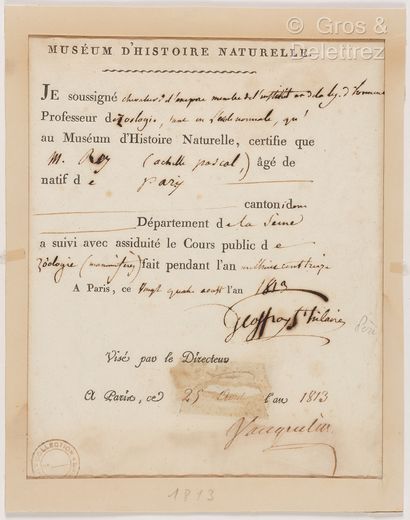 Gros &
Delettrez
MUSÉUM D'HISTOIRE NATURELLE.
JE soussigné chevalier de l'empire membre de l'institut et de la lég. d'honneur
Professeur de Zoologie,
au Muséum d'Histoire Naturelle, certifie que
M. Rey (achille pascal) âgé de
natif de paris
canton idem
Département de la Seine
a suivi avec assiduité le Cours public de
Zoologie (mammifères) fait pendant l'an mil huit cent treize
A Paris, ce vingt quatre aoust l'an 1813
Geoffroy St hilaire
Visé par le Directeur
A Paris, ce 25 l'an 1813
Vauquelin
COLLECTION
1813